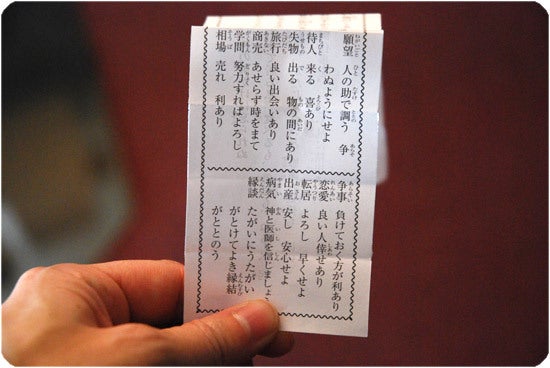 願望 人の助で調う 争
わぬようにせよ
待人 来る 喜あり
失物 出る 物の間にあり
旅行 良い出会いあり
商売 あせらず時をまて
学問 努力すればよろし
相場 売れ 利あり
争事 負けておく方が利あり
恋愛 良い人倖せあり
転居 よろし 早くせよ
出産 安し 安心せよ
病気 神と医師を信じましょ
縁談 たがいにうたがい
がとけてよき縁結
がととのう